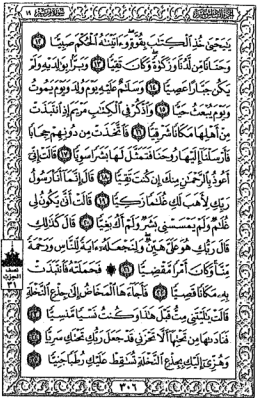 يَٰيَحْيَىٰ خُذِ ٱلْكِتَٰبَ بِقُوَّةٍ وَءَاتَيْنَٰهُ ٱلْحُكْمَ صَبِيًّا ١٢
وَحَنَانًا مِّن لَّدُنَّا وَزَكَوٰةً وَكَانَ تَقِيًّا ١٣ وَبَرًّۢا بِوَٰلِدَيْهِ وَلَمْ
يَكُن جَبَّارًا عَصِيًّا ١٤ وَسَلَٰمٌ عَلَيْهِ يَوْمَ وُلِدَ وَيَوْمَ يَمُوتُ
وَيَوْمَ يُبْعَثُ حَيًّا ١٥ وَٱذْكُرْ فِى ٱلْكِتَٰبِ مَرْيَمَ إِذِ ٱنتَبَذَتْ
مِنْ أَهْلِهَا مَكَانًا شَرْقِيًّا ١٦ فَٱتَّخَذَتْ مِن دُونِهِمْ حِجَابًا
فَأَرْسَلْنَآ إِلَيْهَا رُوحَنَا فَتَمَثَّلَ لَهَا بَشَرًا سَوِيًّا ١٧ قَالَتْ إِنِّىٓ
أَعُوذُ بِٱلرَّحْمَٰنِ مِنكَ إِن كُنتَ تَقِيًّا ١٨ قَالَ إِنَّمَآ أَنَا۠ رَسُولُ
رَبِّكِ لِأَهَبَ لَكِ غُلَٰمًا زَكِيًّا ١٩ قَالَتْ أَنَّىٰ يَكُونُ لِى
غُلَٰمٌ وَلَمْ يَمْسَسْنِى بَشَرٌ وَلَمْ أَكُ بَغِيًّا ٢٠ قَالَ كَذَٰلِكِ
قَالَ رَبُّكِ هُوَ عَلَىَّ هَيِّنٌ وَلِنَجْعَلَهُۥٓ ءَايَةً لِّلنَّاسِ وَرَحْمَةً
مِّنَّا وَكَانَ أَمْرًا مَّقْضِيًّا ٢١ ۞ فَحَمَلَتْهُ فَٱنتَبَذَتْ
بِهِۦ مَكَانًا قَصِيًّا ٢٢ فَأَجَآءَهَا ٱلْمَخَاضُ إِلَىٰ جِذْعِ ٱلنَّخْلَةِ
قَالَتْ يَٰلَيْتَنِى مِتُّ قَبْلَ هَٰذَا وَكُنتُ نَسْيًا مَّنسِيًّا ٢٣
فَنَادَىٰهَا مِن تَحْتِهَآ أَلَّا تَحْزَنِى قَدْ جَعَلَ رَبُّكِ تَحْتَكِ سَرِيًّا ٢٤
وَهُزِّىٓ إِلَيْكِ بِجِذْعِ ٱلنَّخْلَةِ تُسَٰقِطْ عَلَيْكِ رُطَبًا جَنِيًّا ٢٥
نصف
الحزب
٣١
٣٠٦